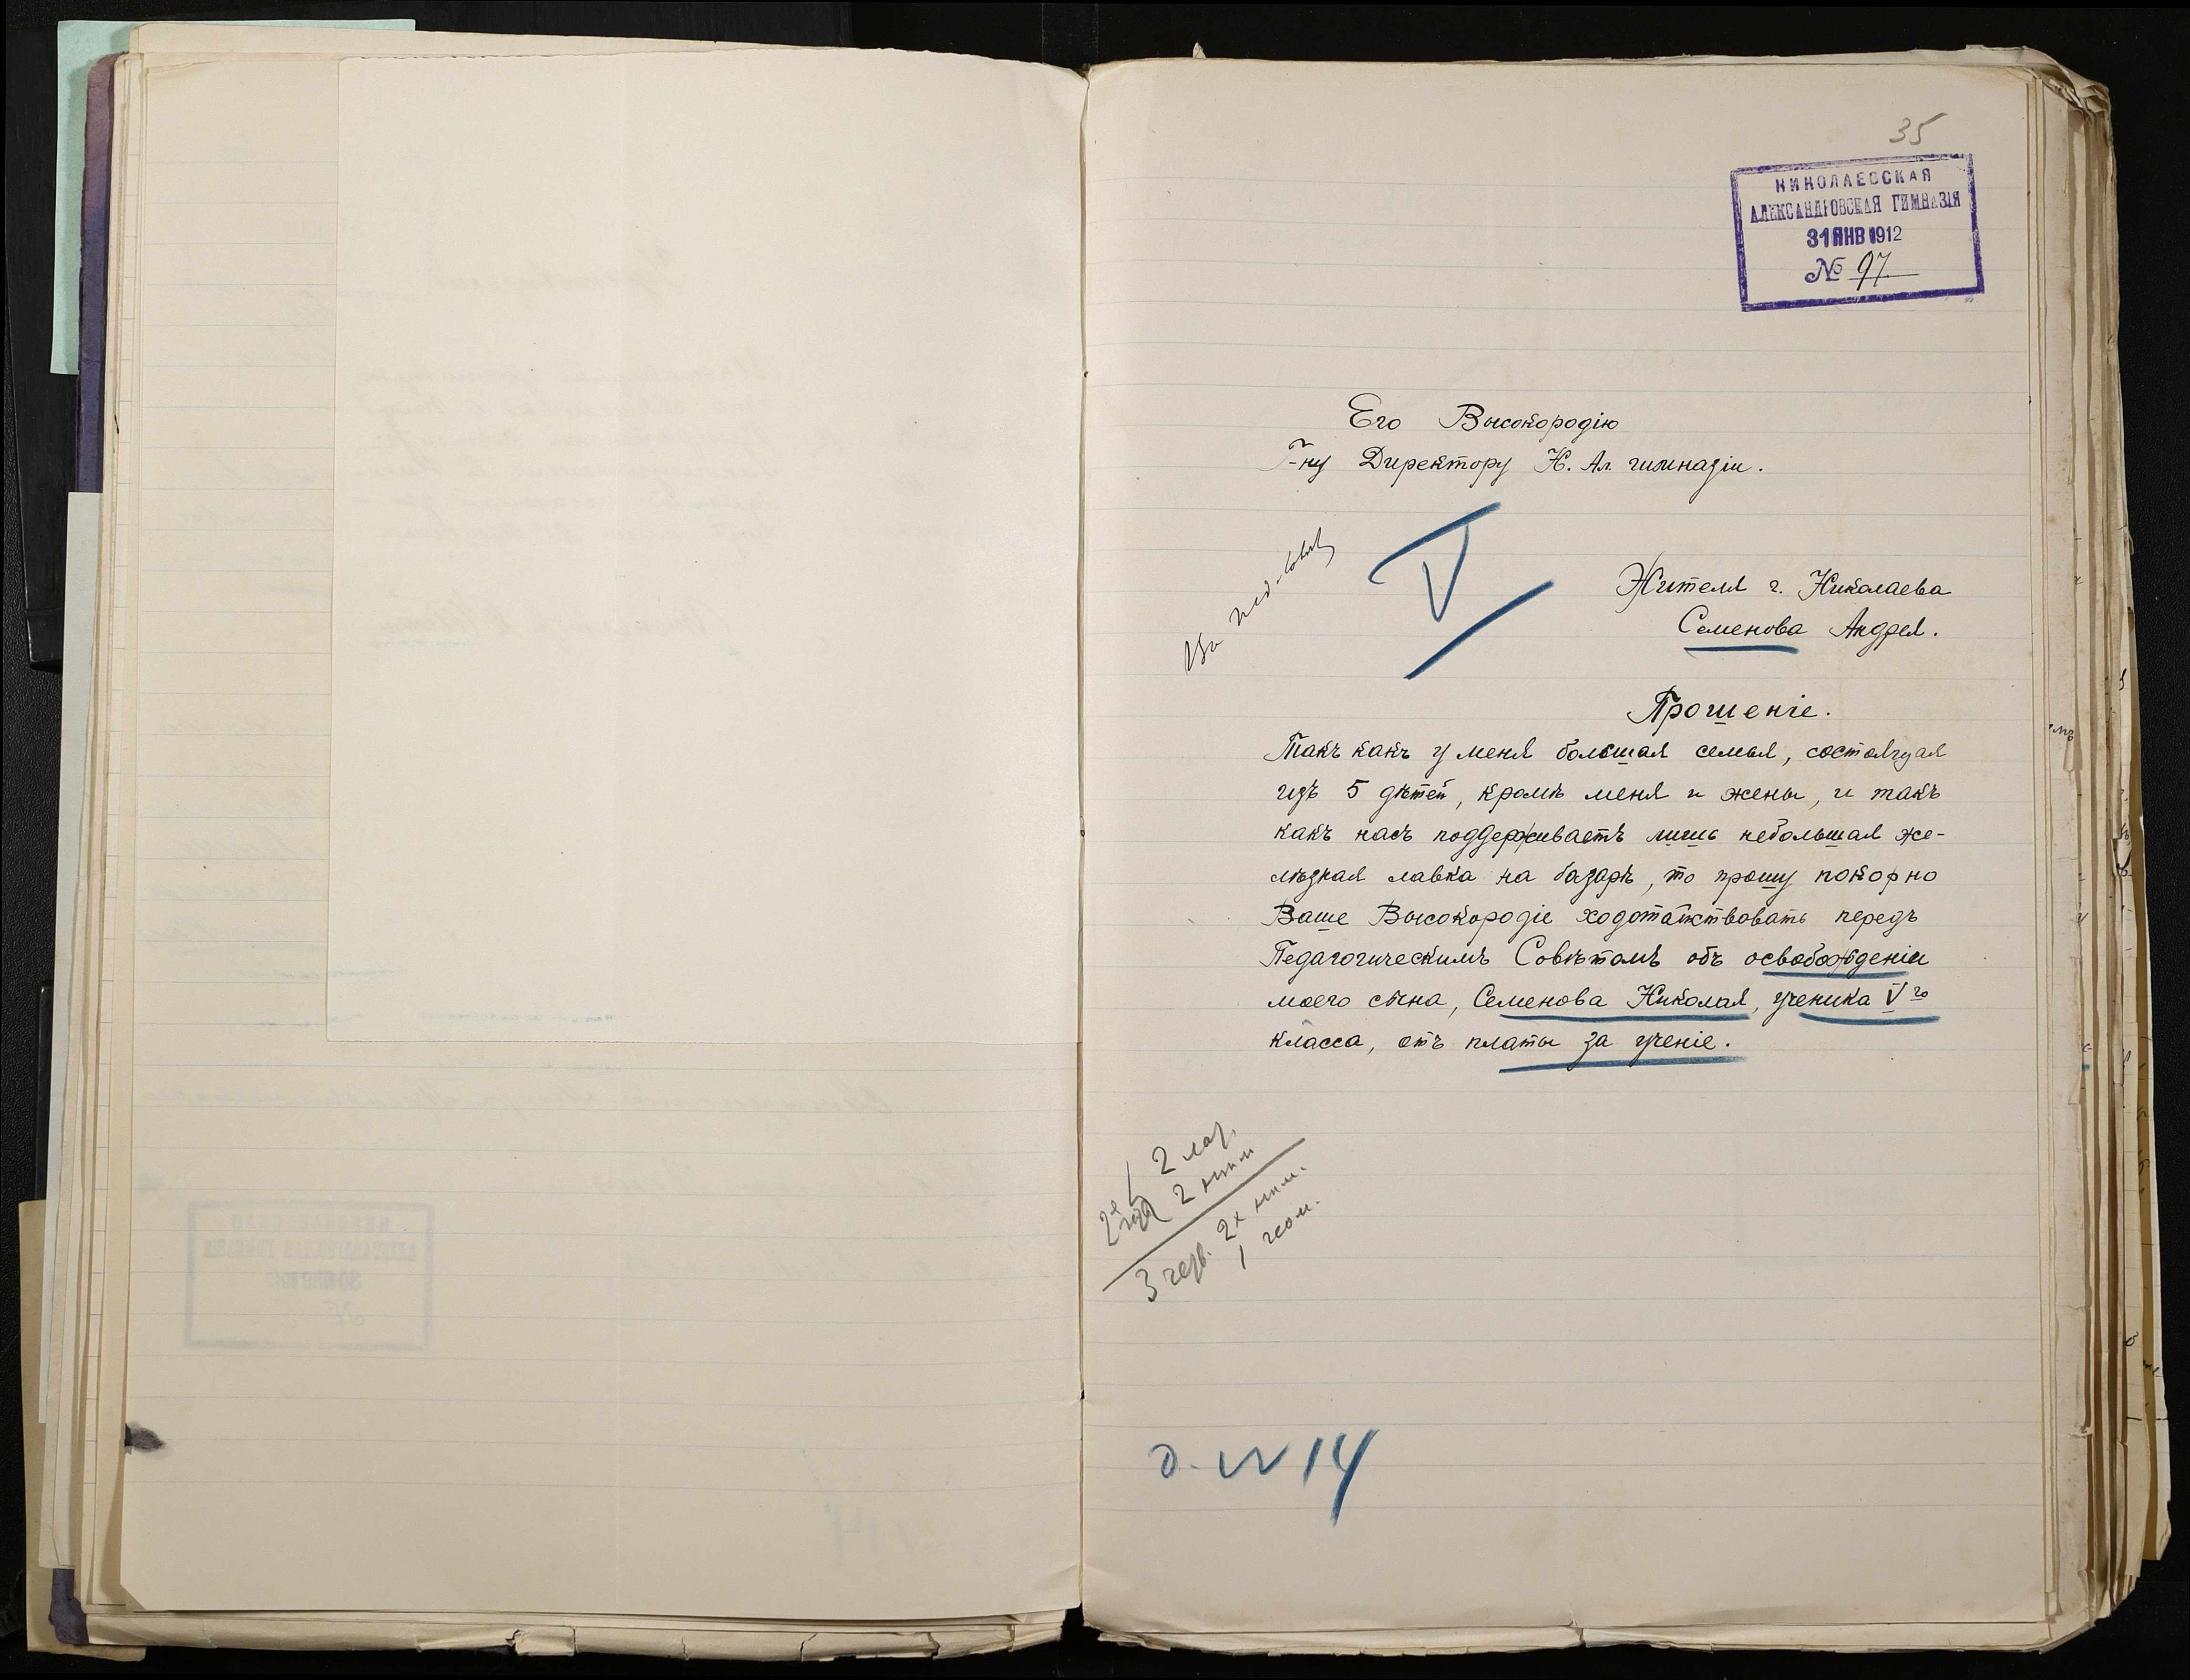 35
НИКОЛАЕВСКАЯ
АЛЕКСАНДРОВСКАЯ ГИМНАЗІЯ
31 ЯНВ 1912
№ 97
Его Высокородію
Г-ну Директору Н. Ал. гимназіи.
V
Жителя г. Николаева
Семенова Андрея.
Прошеніе.
Такъ какъ у меня большая семья, состоящая
изъ 5 дѣтей, кромѣ меня и жены, и такъ
какъ насъ поддерживаетъ лишь небольшая же-
лѣзная лавка на базарѣ, то прошу покорно
Ваше Высокородіе ходотайствовать передъ
Педагогическимъ Совѣтомъ объ освобожденіи
моего сына, Семенова Николая, ученика V го
класса, отъ платы за ученіе.
2 лат.
2 нѣм
2х нѣм.
1 геом.
д. № 14